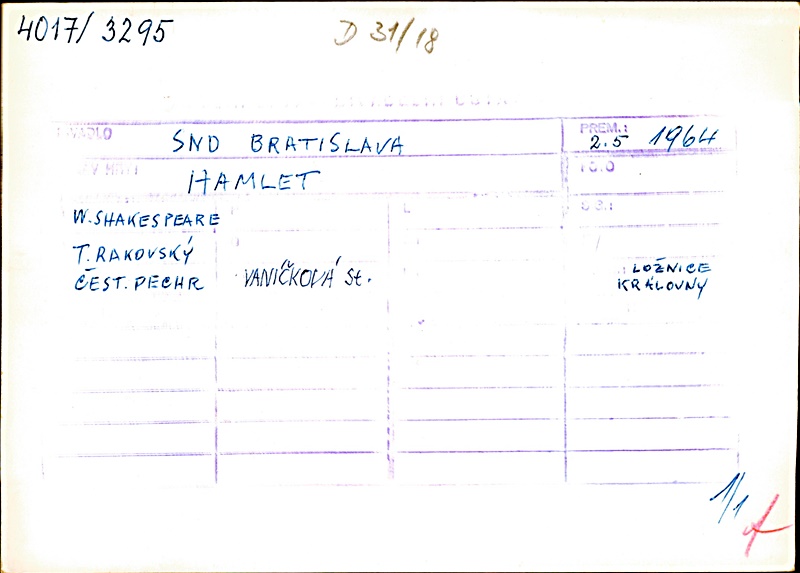 4017/3295
D 31/18
SND BRATISLAVA
PREM.:
2.5 1964
HAMLET
W. SHAKESPEARE
T. RAKOVSKÝ
ČEST. PECHR
VANÍČKOVÁ St.
LOŽNICE
KRÁLOVNY
1/1